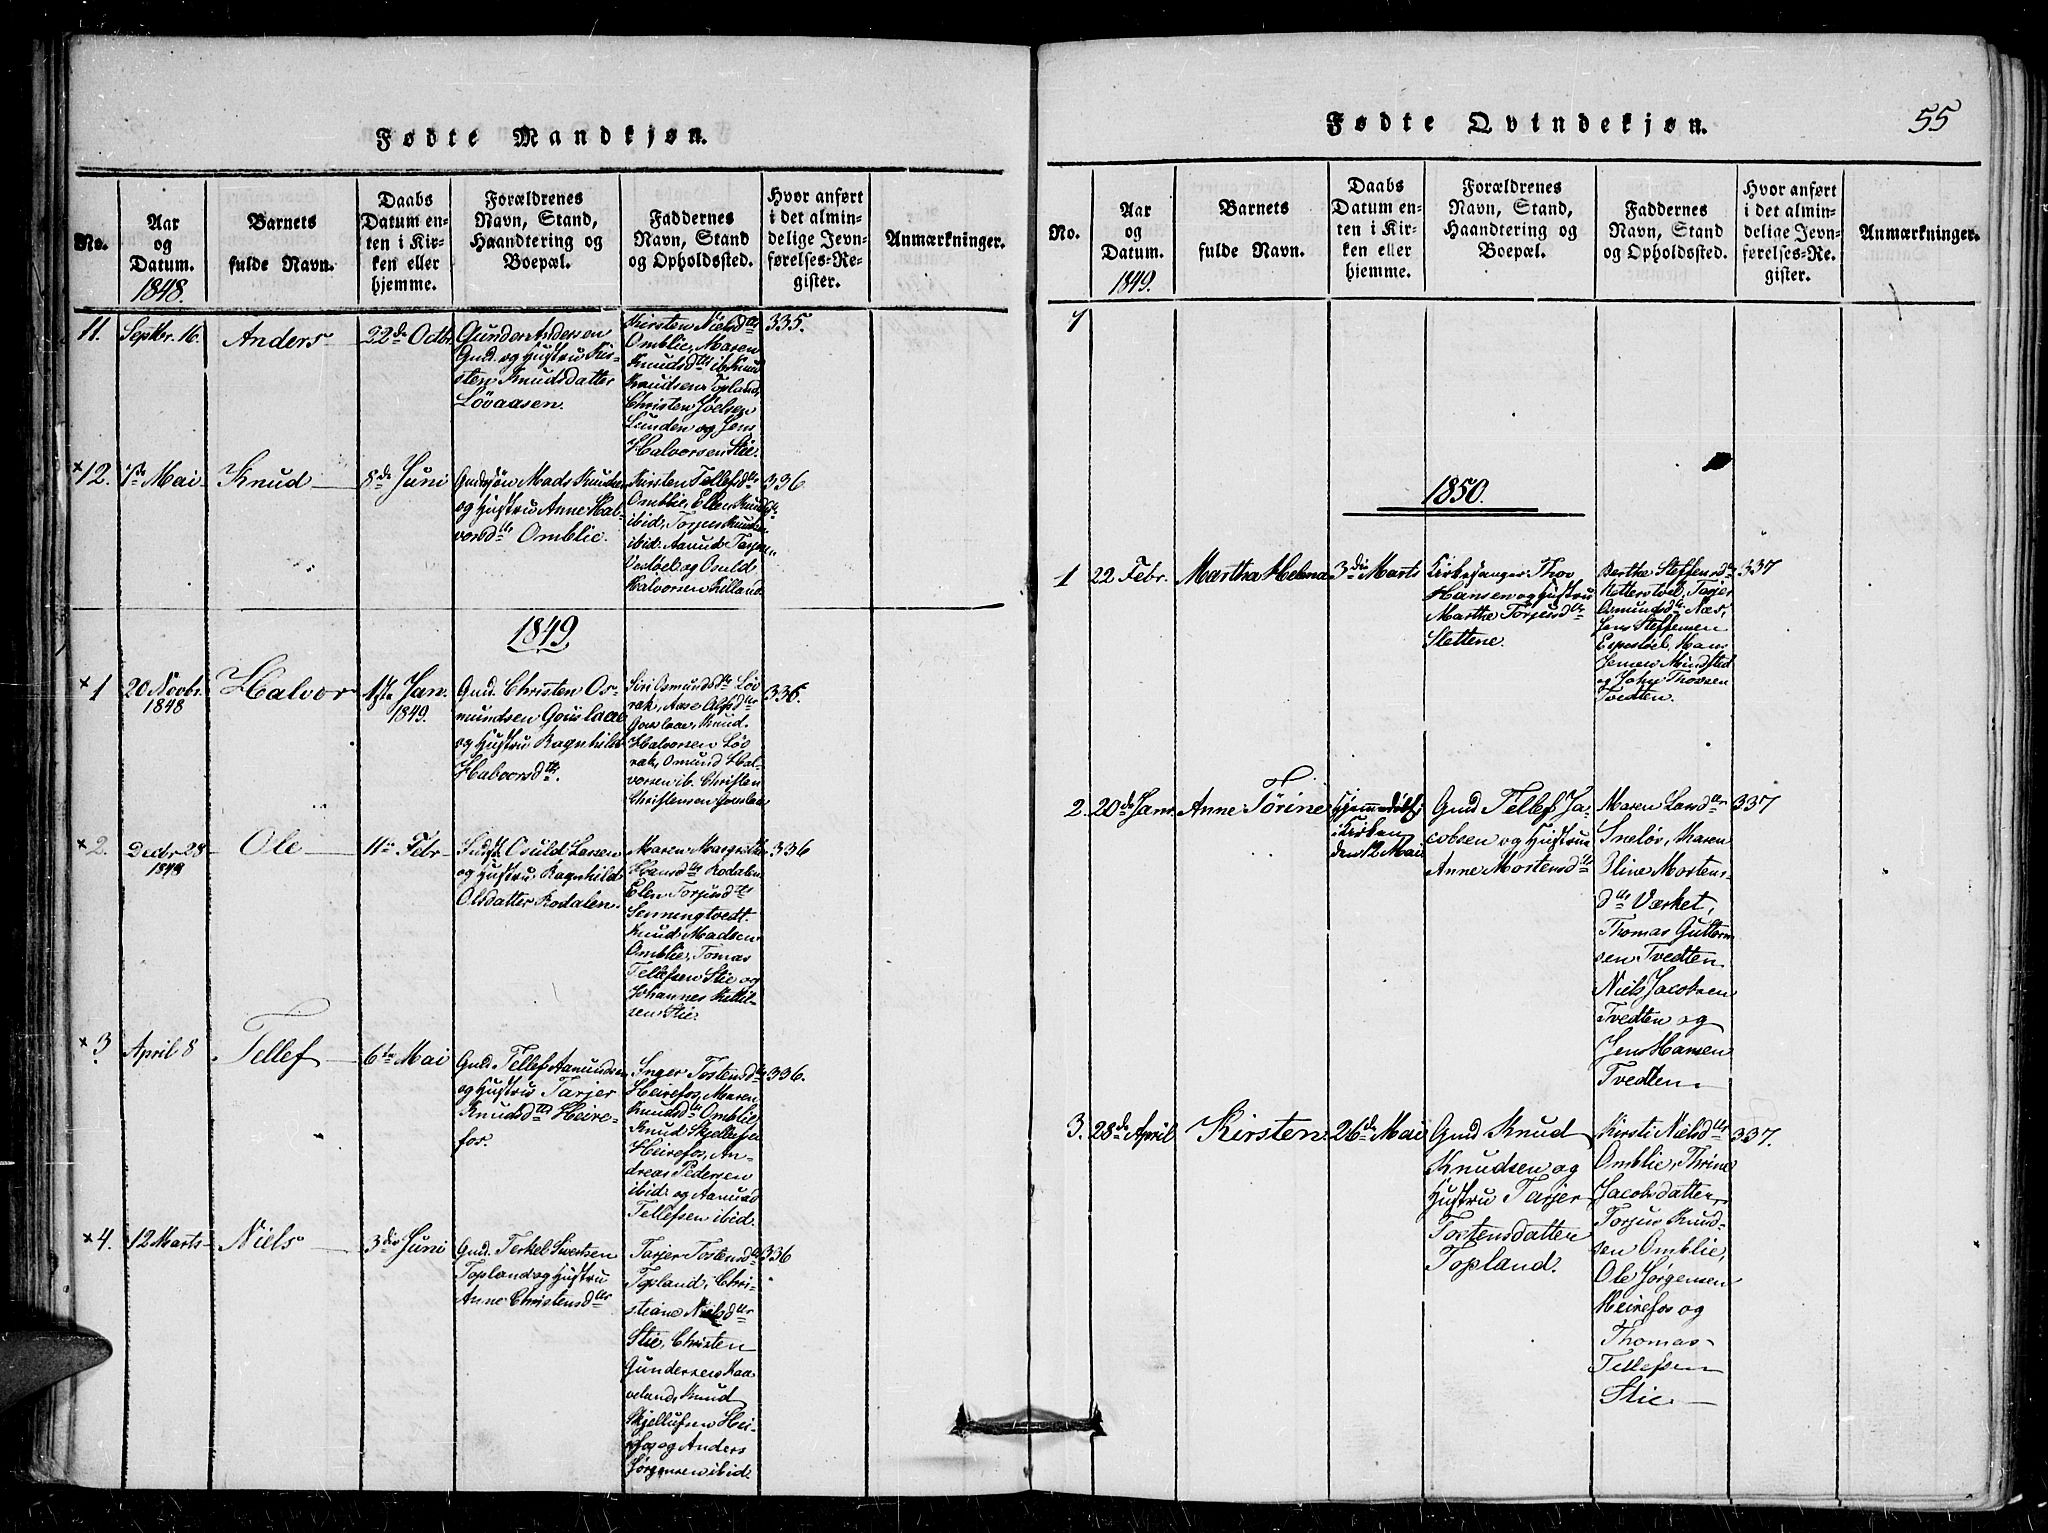 Fødte Mandkjøn.
No.
Aar
og
Datum.
1848.
Barnets
fulde Navn.
Daabs
Datum en-
ten i Kir-
ken eller
hjemme.
Forældrenes
Navn, Stand,
Haandtering og
Boepæl.
Faddernes
Navn, Stand
og Opholdssted.
Hvor anført
i det almin-
delige Jevn-
førelses-Re-
gister.
Anmærkninger.
11.
Septbr. 16.
Anders
22de Octbr.
Gunder Andersen
Gmd. og Hustru Kir-
sten Knudsdatter
Løvaasen.
Kirsten Nielsdtr
Omblie, Maren
Knudsdtr ib. Knud
Knudsen Topland,
Christen Joelsen
Lunden og Jens
Halvorsen Stie.
335.
×12.
1ste Mai
Knud
8de Juni
Mads Knudsen
og Hustru Anne Hal-
vorsdtr Omblie.
Kirsten Tellefsdtr
Omblie, Ellen Knudsdtr
ibid, Torjus Knudsen
ibid. Aanud Tarjen
og Osuld
Halvorsen Lilland.
336
1849
×1
20 Novbr.
1848
Halvor
1ste Jan.
1849.
Gmd. Christen Os-
mundsen Gouslaae
og Hustru Ragnhild
Halvorsdtr.
Siri Osmundsdtr Løv
rak, Aase Olsdtr
Gouslaae, Knud
Halvorsen Løv
rak, Osmund Hal-
vorsen ib. Christen
Christensen Gouslaae
336.
×2.
Decbr 28
1848
Ole
11te Febr
Indst. Osuld Larsen
og Hustru Ragnhild
Olsdatter Rodalen.
Maren Margrethe
Hansdtr Rodalen
Elen Torjusdtr
Senningtvedt.
Knud Madsen
Omblie, Tomas
Tellefsen Stie og
Johannes Kittil-
sen Stie.
336
×3
April 8
Tellef
6te Mai
Gmd. Tellef Aanundsen
og Hustru Tarjer
Knudsdtr Heire-
fos.
Inger Tostensdtr
Heirefos, Maren
Knudsdtr Omblie
Knud Skjellefsen
Heirefos, An-
dreas Pedersen
ibid. og Aanund
Tellefsen ibid.
336.
×4.
12 Marts
Niels
3die Juni
Gmd. Terkel Sivertsen
Topland og Hustru
Anne Christensdtr
Tarjer Tostensdtr
Topland, Chri-
stiane Nielsdtr
Stie, Christen
Gundersen Kaa-
veland, Knud
Skjellufsen Hei-
refos og Anders
Jørgensen ibid.
336
55
Fødte Qvindekjøn.
No.
Aar
og
Datum.
1849.
Barnets
fulde Navn.
Daabs
Datum en-
ten i Kir-
ken eller
hjemme.
Forældrenes
Navn, Stand,
Haandtering og
Boepæl.
Faddernes
Navn, Stand
og Opholdssted.
Hvor anført
i det almin-
delige Jevn-
førelses-Re-
gister.
Anmærkninger.
1850.
1
22 Febr.
Martha Helena
3die Marts
Kirkesanger Thov
Hansen og Hustru
Marthe Torjusdtr
Slettene.
Berthe Steffensdtr
Tarjer
Osmundsdtr Næs,
Jens Steffensen
Espestøel, Hans
Jensen Mindsted
og John Thovsen
Tvedten.
337
2.
20de Janr.
Anne Tørine
Hjemmedøbt,
i Kirken
den 12 Mai
Gmd Tellef Ja-
cobsen og Hustrue
Anne Mortensdtr
Maren Larsdtr
Sneløs, Karen
Oline Mortens-
dtr Værket,
Thomas Guttorm
sen Tvedten
Niels Jacobsen
Tvedten og
Jens Hansen
Tvedten
337
3.
28de April
Kirsten
26de Mai
Gmd Knud
Knudsen og
Hustru Tarjer
Tostensdatter
Topland.
Kirsti Nielsdtr
Omblie, Thrine
Jacobsdatter
Torjus Knud-
sen Omblie,
Ole Jørgensen
Heirefos og
Thomas
Tellefsen
Stie
337.